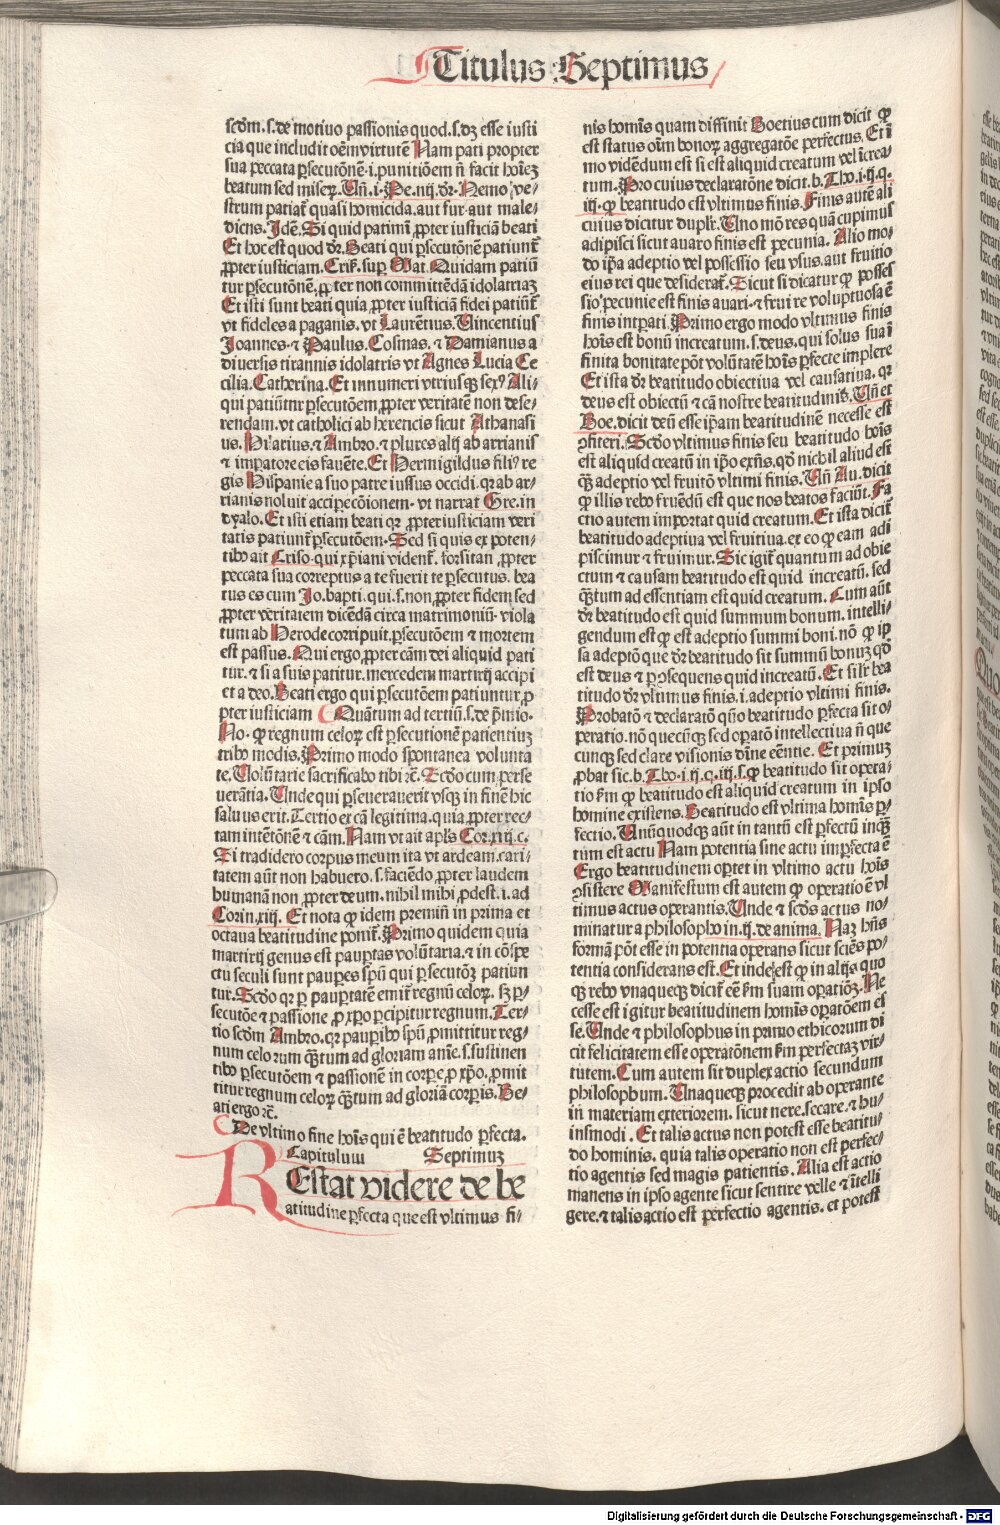 Titulus Septimus
scḋm.s.de motiuo passionis quod.s.dꝫ esse iusti
cia que includit oēm virtutē Nam pati propter
sua peccata ꝑsecutōnē.i.punitiōem nō facit hoīeꝫ
beatum sed miserꝝ. Uñ.i.Pe.iiij.dr̄.Nemo ve-
strum patiat̄ quasi homicida.aut fur.aut male-
dicus. Idē. Si quid patimī ꝓpter iusticiā beati
Et hoc est quod dr̄. Beati qui ꝑsecutōnē patiunt̄
ꝓpter iusticiam. Crisꝰ. sup̱ Mat. Quidam patiū
tur ꝑsecutōnē.ꝓpter non committēdā idolatriaꝫ
Et isti sunt beati quia ꝓpter iusticiā fidei patiūt̄
vt fideles a paganis. vt Laurētius. Uincentius
Joannes. ⁊ Paulus. Cosmas. ⁊ Damianus a
diuersis tirannis idolatris vt Agnes Lucia Ce
cilia. Catherina. Et innumeri vtriusqꝫ sexꝰ Ali-
qui patiūtur ꝑsecutōem ꝓpter veritatē non dese-
rendam. vt catholici ab herencis sicut Athanasi
us. Hilarius. ⁊ Ambro. ⁊ plures alij ab arrianis
⁊ imꝑatore eis fauēte. Et Hermigildus filiꝰ re
gis Hispanie a suo patre iussus occidi. qꝛ ab ar-
rianis noluit accipe cōionem. vt narrat Gre. in
dyalo. Et isti etiam beati qꝛ ꝓpter iusticiam veri
tatis patiunt̄ ꝑsecutōem. Sed si quis ex poten-
tibꝰ ait Criso. qui xp̄iani vident̄. forsitan ꝓpter
peccata sua correptus a te fuerit te ꝑsecutus. bea
tus es cum Jo.bapti. qui.s.non ꝓpter fidem sed
ꝓpter veritatem dicēdā circa matrimoniū. viola
tum ab Herode corripuit.ꝑsecutōem ⁊ mortem
est passus. Qui ergo ꝓpter cām dei aliquid pati
tur. ⁊ si a suis patitur. mercedem martirij accipi
et a deo. Beati ergo qui ꝑsecutōem patiuntur ꝓ
pter iusticiam Quātum ad tertiū.s.de p̄mio.
No. ꝙ regnum celoꝝ est ꝑsecutionē patientiuꝫ
tribꝰ modis. Primo modo spontanea volunta
te. Uolūtarie sacrificabo tibi ꝛc. Scdo cum ꝑse
uerātia. Unde qui ꝑseuerauerit vsqꝫ in finē hic
saluus erit. Tertio ex cā legitima. quia ꝓpter rec-
tam intētōnē ⁊ cām. Nam vt ait apl̄s Cor.xiij.c.
Si tradidero corpus meum ita vt ardeam. cari-
tatem aūt non habuero.s.faciēdo ꝓpter laudem
humanā non ꝓpter deum. nihil mihi ꝓdest.i.ad
Corin.xiij. Et nota ꝙ idem premiū in prima et
octaua beatitudine ponit̄. Primo quidem quia
martirij genus est pauꝑtas volūtaria. ⁊ in cōspe
ctu seculi sunt pauꝑes spū qui ꝑsecutōꝫ patiun
tur. Scdo qꝛ ꝑ pauꝑtatē emit̄ regnū celoꝝ. sꝫ ꝑ-
secutōe ⁊ passione ꝓ xp̄o ꝑcipitur regnum. Ter-
tio scdm Ambro. qꝛ pauꝑibꝰ spū ꝓmittitur reg-
num celorum qꝫtum ad gloriam anīe.s.sustinen
tibꝰ ꝑsecutōem ⁊ passionē in corꝑe ꝓ xp̄o. ꝓmit
titur regnum celoꝝ qꝫtum ad gloriā corꝑis. Be-
ati ergo ꝛc.
De vltimo fine hoīs qui ē beatitudo ꝑfecta.
Capitulum Septimuꝫ
REstat videre de be
atitudine ꝑfecta que est vltimus fi-
nis homīs quam diffinit Boetius cum dicit ꝙ
est status oīm bonoꝝ aggregatōe perfectus. Et ī
mo vidēdum est si est aliquid creatum vel īcrea-
tum. Pro cuius declaratōne dicit.b. Tho.i.ij.q.
iij. ꝙ beatitudo est vltimus finis. Finis autē ali
cuius dicitur duplr̄. Uno mō res quā cupimus
adipisci sicut auaro finis est pecunia. Alio mo-
do ip̄a adeptio vel possessio seu vsus. aut fruitio
eius rei que desiderat̄. Sicut si dicatur ꝙ posses
sio pecunie est finis auari. ⁊ frui re voluptuosa ē
finis intꝑati. Primo ergo modo vltimus finis
hoīs est bonū increatum.s.deus. qui solus sua ī
finita bonitate pōt volūtatē hoīs ꝑfecte implere
Et ista dr̄ beatitudo obiectiua vel causatiua. qꝛ
deus est obiectū ⁊ cā nostre beatitudinis. Uñ et
Boe. dicit deū esse ip̄am beatitudinē necesse est
ꝯfiteri. Scdo vltimus finis seu beatitudo hoīs
est aliquid creatū in ip̄o exn̄s. qd̄ nichil aliud est
qꝫ adeptio vel fruitō vltimi finis. Uñ Au. dicit
ꝙ illis rebꝰ fruēdū est que nos beatos faciūt. Fa
ctio autem importat quid creatum. Et ista dicit̄
beatitudo adeptiua vel fruitiua. ex eo ꝙ eam adi
piscimur ⁊ fruimur. Sic igit̄ quantum ad obie
ctum ⁊ causam beatitudo est quid increatū. sed
qꝫtum ad essentiam est quid creatum. Cum aūt
dr̄ beatitudo est quid summum bonum. intelli-
gendum est ꝙ est adeptio summi boni. nō ꝙ ip̄
sa adeptō que dr̄ beatitudo sit summū bonuꝫ qd̄
est deus ⁊ ꝑ ꝯsequens quid increatū. Et silr̄ bea
titudo dr̄ vltimus finis.i.adeptio vltimi finis.
Probatō ⁊ declaratō qūo beatitudo ꝑfecta sit o-
peratio. nō quecūqꝫ sed oꝑatō intellectiua nō que
cunqꝫ sed clare visionis diuīe eēntie. Et primuꝫ
ꝓbat sic.b. Tho.i.ij.q.iij.s.ꝙ beatitudo sit opera-
tio ẜm ꝙ beatitudo est aliquid creatum in ipso
homine existens. Beatitudo est vltima homīs ꝑ-
fectio. Unūquodqꝫ aūt in tantū est ꝑfectū inqꝫ
tum est actu Nam potentia sine actu imꝑfecta ē
Ergo beatitudinem oꝑtet in vltimo actu hoīs
ꝯsistere Manifestum est autem ꝙ operatio ē vl
timus actus operantis. Unde ⁊ scds actus no-
minatur a philosopho in.ij.de anima. Naꝫ hn̄s
formā pōt esse in potentia operans sicut sciēs po-
tentia considerans est. Et inde est ꝙ in alijs quo
qꝫ rebꝰ vnaqueqꝫ dicit̄ eē ẜm suam oꝑatiōꝫ. Ne
cesse est igitur beatitudinem homīs oꝑatōem es
se. Unde ⁊ philosophus in primo ethicorum di
cit felicitatem esse operatōnem ẜm perfectaꝫ vir-
tutem. Cum autem sit duplex actio secundum
philosophum. Unaqueqꝫ procedit ab operante
in materiam exteriorem. sicut vere. secare. ⁊ hu-
iusmodi. Et talis actus non potest esse beatitu-
do hominis. quia talis operatio non est perfec-
tio agentis sed magis patientis. Alia est actio
manens in ipso agente sicut sentire velle ⁊ ītelli
gere. ⁊ talis actio est perfectio agentis. et potest
Digitalisierung gefördert durch die Deutsche Forschungsgemeinschaft - DFG